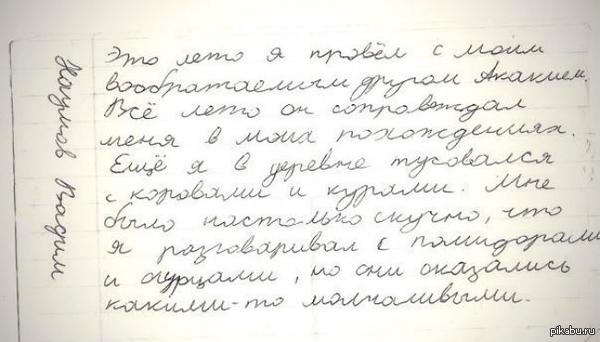 Наумов Вадим
Это лето я провёл с моим
вообратаемым другом Акакием.
Всё лето он сопровждал
меня в моих похождениях.
Ещё я в деревне тусовался
с коровами и курами. Мне
было настолько скучно, что
я разговаривал с помидорами
и огурцами, но они оказались
какими-то молчаливыми.
pikabu.ru